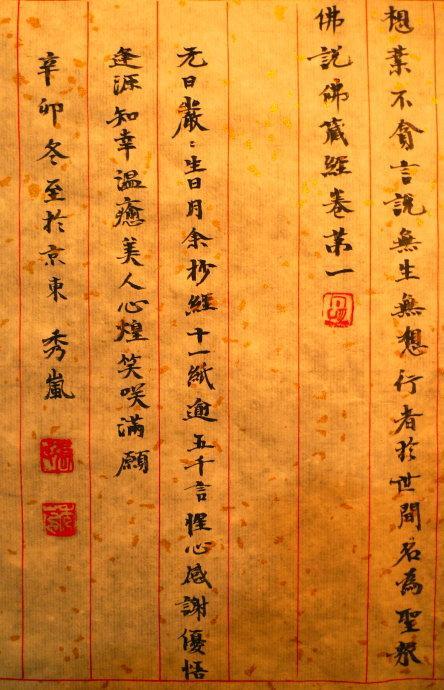 想業不貪言說無生無想行者於世間名為聖眾
佛說佛藏經卷第一
元日嚴:生日月余抄經十一紙逾五千言惺心感謝優悟
逢源知幸溫癒美人心煌笑咲滿願
辛卯冬至於京東 秀嵐